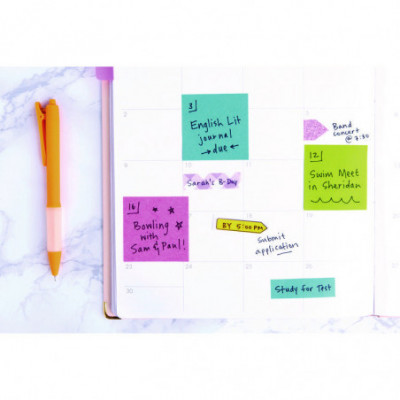 3
English Lit
journal
due
Band
concert
@ 8:30
12
Swim Meet
in Sheridan
Sarah's B-Day
16
Bowling
with
Sam & Paul!
BY 5:00 PM
Submit
application
Study for Test
2
9
30